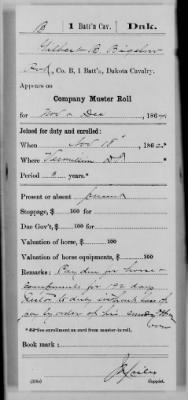 B | 1 Batt'n Cav. | Dak.
Gilbert B. Bigelow
Pvt, Co. B, 1 Batt'n, Dakota Cavalry.
Appears on
Company Muster Roll
for Nov & Dec, 1862.
Joined for duty and enrolled:
When Nov 18, 186
Where Vermillion D.T.
Period 3 years.*
Present or absent present
Stoppage, $ 100 for
Due Gov't, $ 100 for
Valuation of horse, $ 100
Valuation of horse equipments, $ 100
Remarks: Pay due for horse &
equipments for 122 days
to duty without loss of
pay by order of
* See enrollment on card from muster-in roll.
Book mark:
(358c) Copyist.